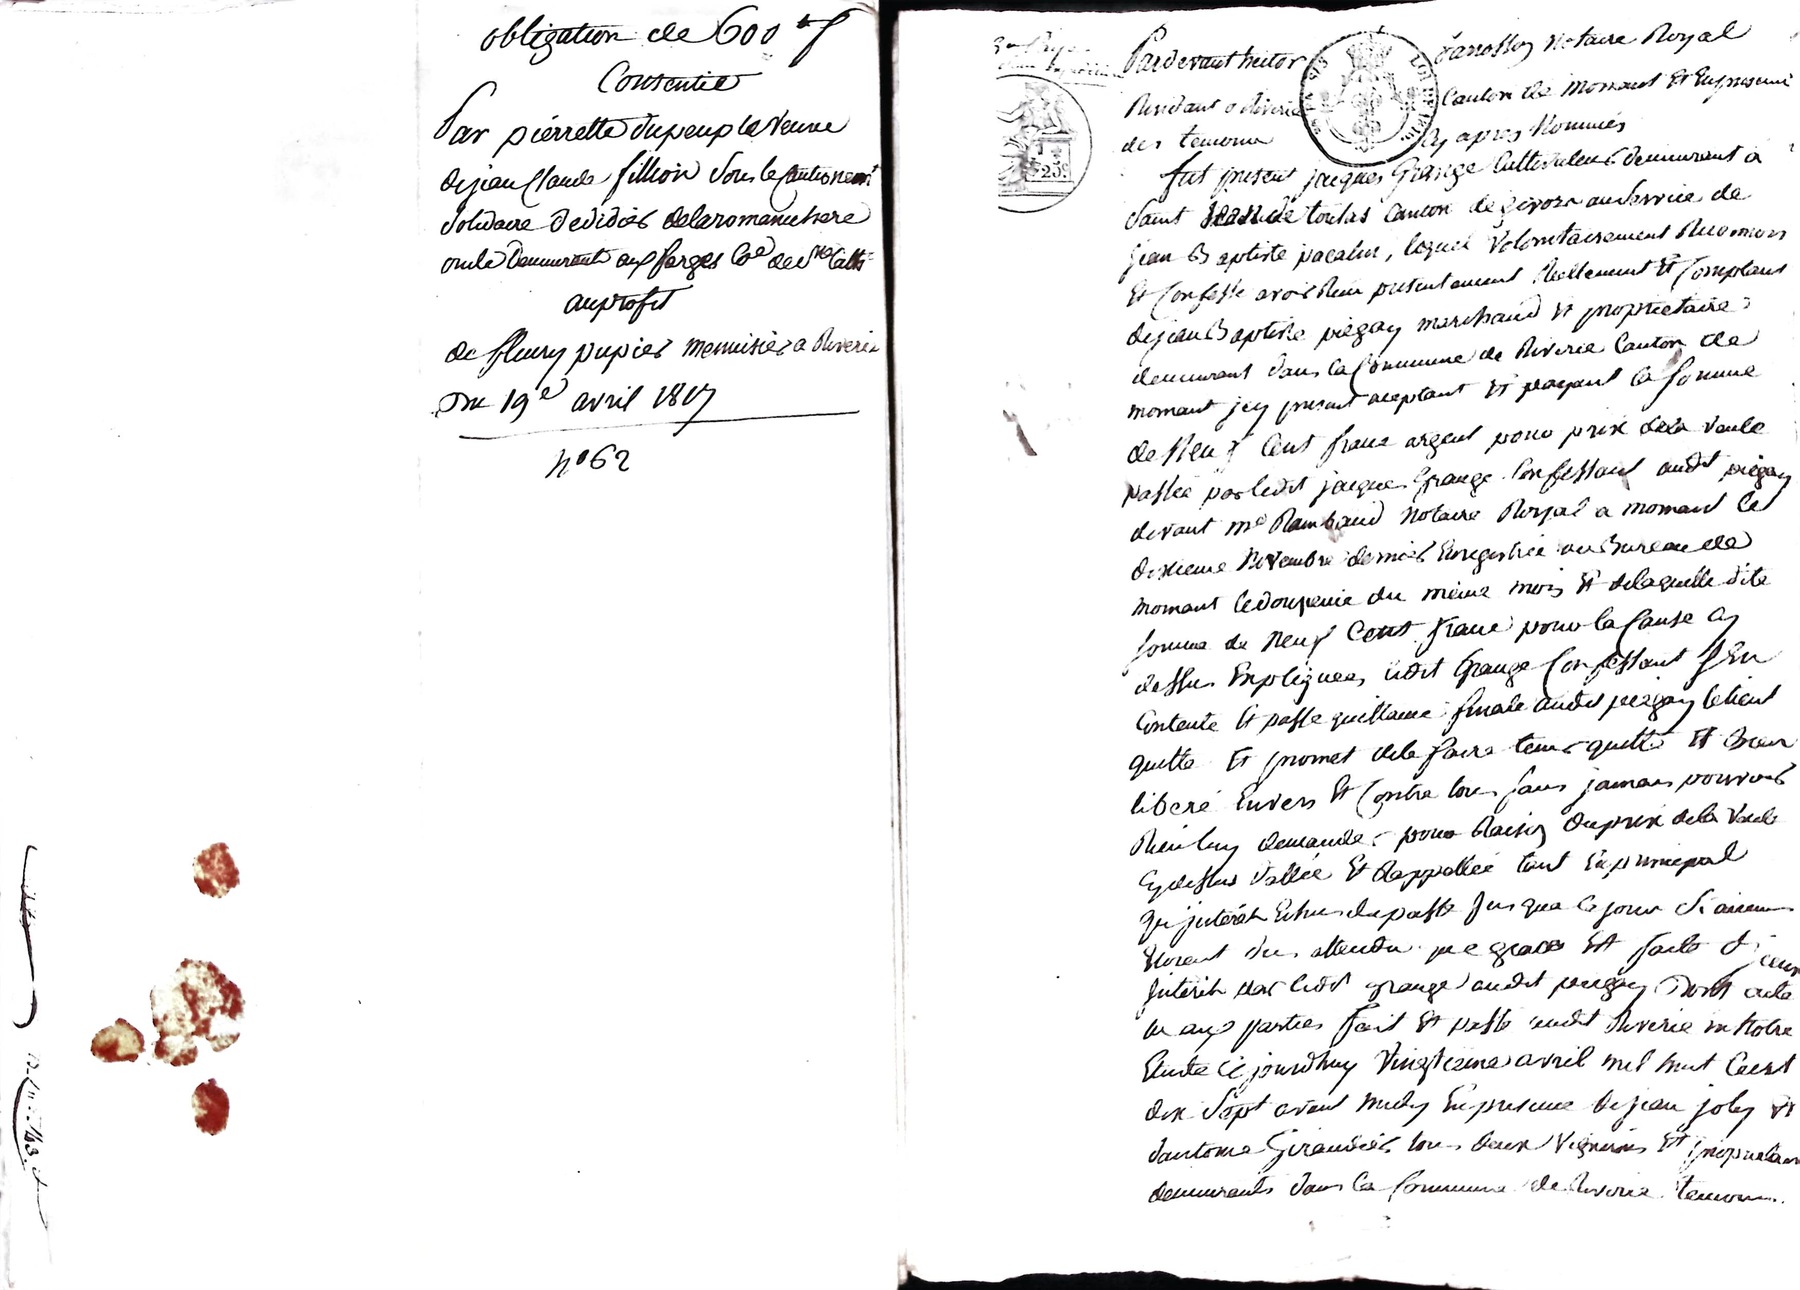 obligation de 600 f
Consentie
Par pierrette dupeuple Veuve
de jean Claude fillion sous le Cautionemt
solidaire de didier delaromanchere
aux forges
au profit
de fleury pupier menuisier a Riverie
Du 19e avril 1817
N° 62
Pardevant hector janosson Notaire Royal
Residant a Riverie Canton de Mornant Et En presence
des temoins Cy apres Nommés
fut present jacques Grange Cultivateur demeurant a
Saint jean de toulas Canton de givors au service de
jean Baptiste pacalin, lequel Volontairement Reconnois
Et Confesse avoir Reçu presentement Reellement Et Comptant
de jean Baptiste piegay marchand Et proprietaire
demeurant dans la Commune de Riverie Canton de
mornant icy present aceptant Et payant la somme
de Neuf Cent franc argent pour prix de la Vente
passée par ledit jacques Grange Confessant audit piegay
devant me Rambaud Notaire Royal a mornant le
dixieme Novembre dernier Enregistrée au Bureau de
mornant le douzeme du même mois Et de laquelle dite
somme de Neuf Cent franc pour la Cause Cy
dessus Expliquée, ledit Grange Confessant s'En
Contente Et passe quittance finale audit piegay le tient
quitte Et promet de le faire tenir quitte Et Bien
liberé Envers Et Contre tous sans jamais pouvoir
Rien luy demander pour Raison du prix de la Vente
Cy dessus dattée Et Rappellée tant En principal
qu'interêt Echus du passé jusqua Ce jour si aucuns
Etoient dus attendu que grace Est faite d'iceux
interêt par ledit grange audit piegay Dont acte
lu aux parties fait Et passé audit Riverie en Notre
Etude Ce jourdhuy Vingtieme avril mil huit Cent
dix sept avant midy En presence de jean joly Et
d'antoine Giraudier tous deux Vignerons Et proprietaires
demeurants dans la Commune de Riverie temoins